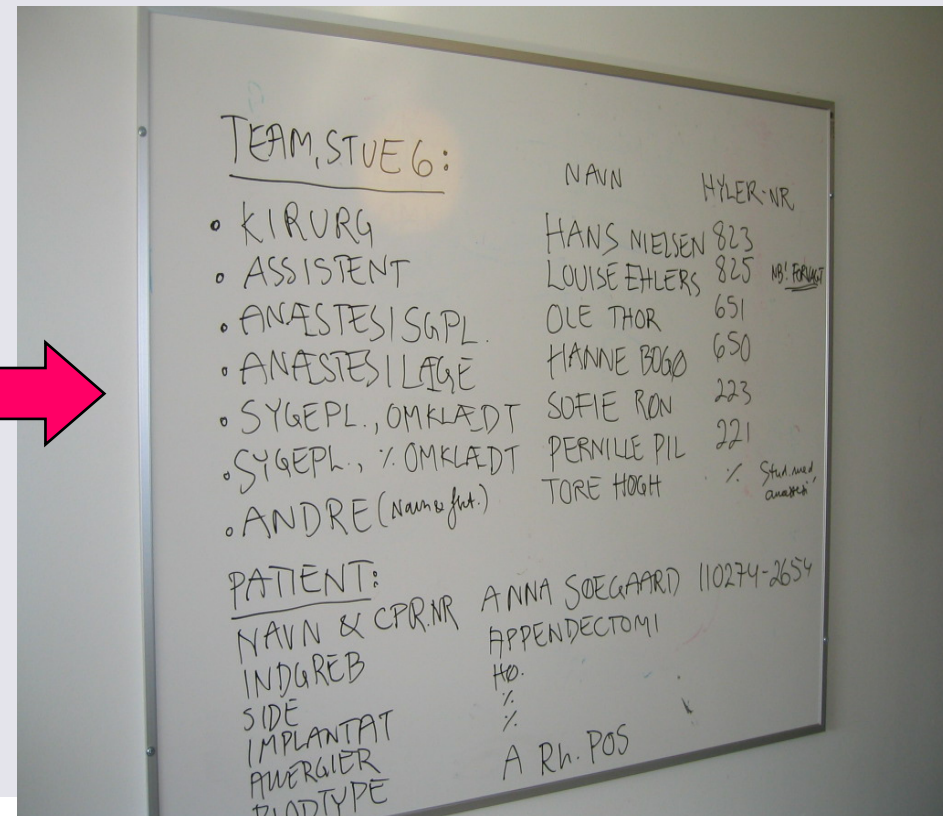 TEAM, STUE 6:
NAVN HYLER-NR
• KIRURG HANS NIELSEN 823
• ASSISTENT LOUISE EHLERS 825 NB! FORVAGT
• ANÆSTESISGPL. OLE THOR 651
• ANÆSTESILÆGE HANNE BOGØ 650
• SYGEPL., OMKLÆDT SOFIE RON 223
• SYGEPL., % OMKLÆDT PERNILLE PIL 221
• ANDRE (Navn & fkt.) TORE HØGH % Stud.med
anæstesi
PATIENT:
NAVN & CPR.NR ANNA SØEGAARD 110274-2654
INDGREB APPENDECTOMI
SIDE HØ.
IMPLANTAT %
ALLERGIER %
BLODTYPE A Rh. POS